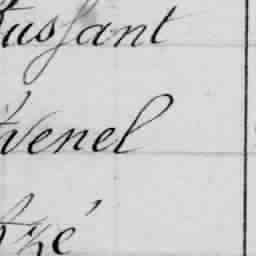 ussant
venel
zé